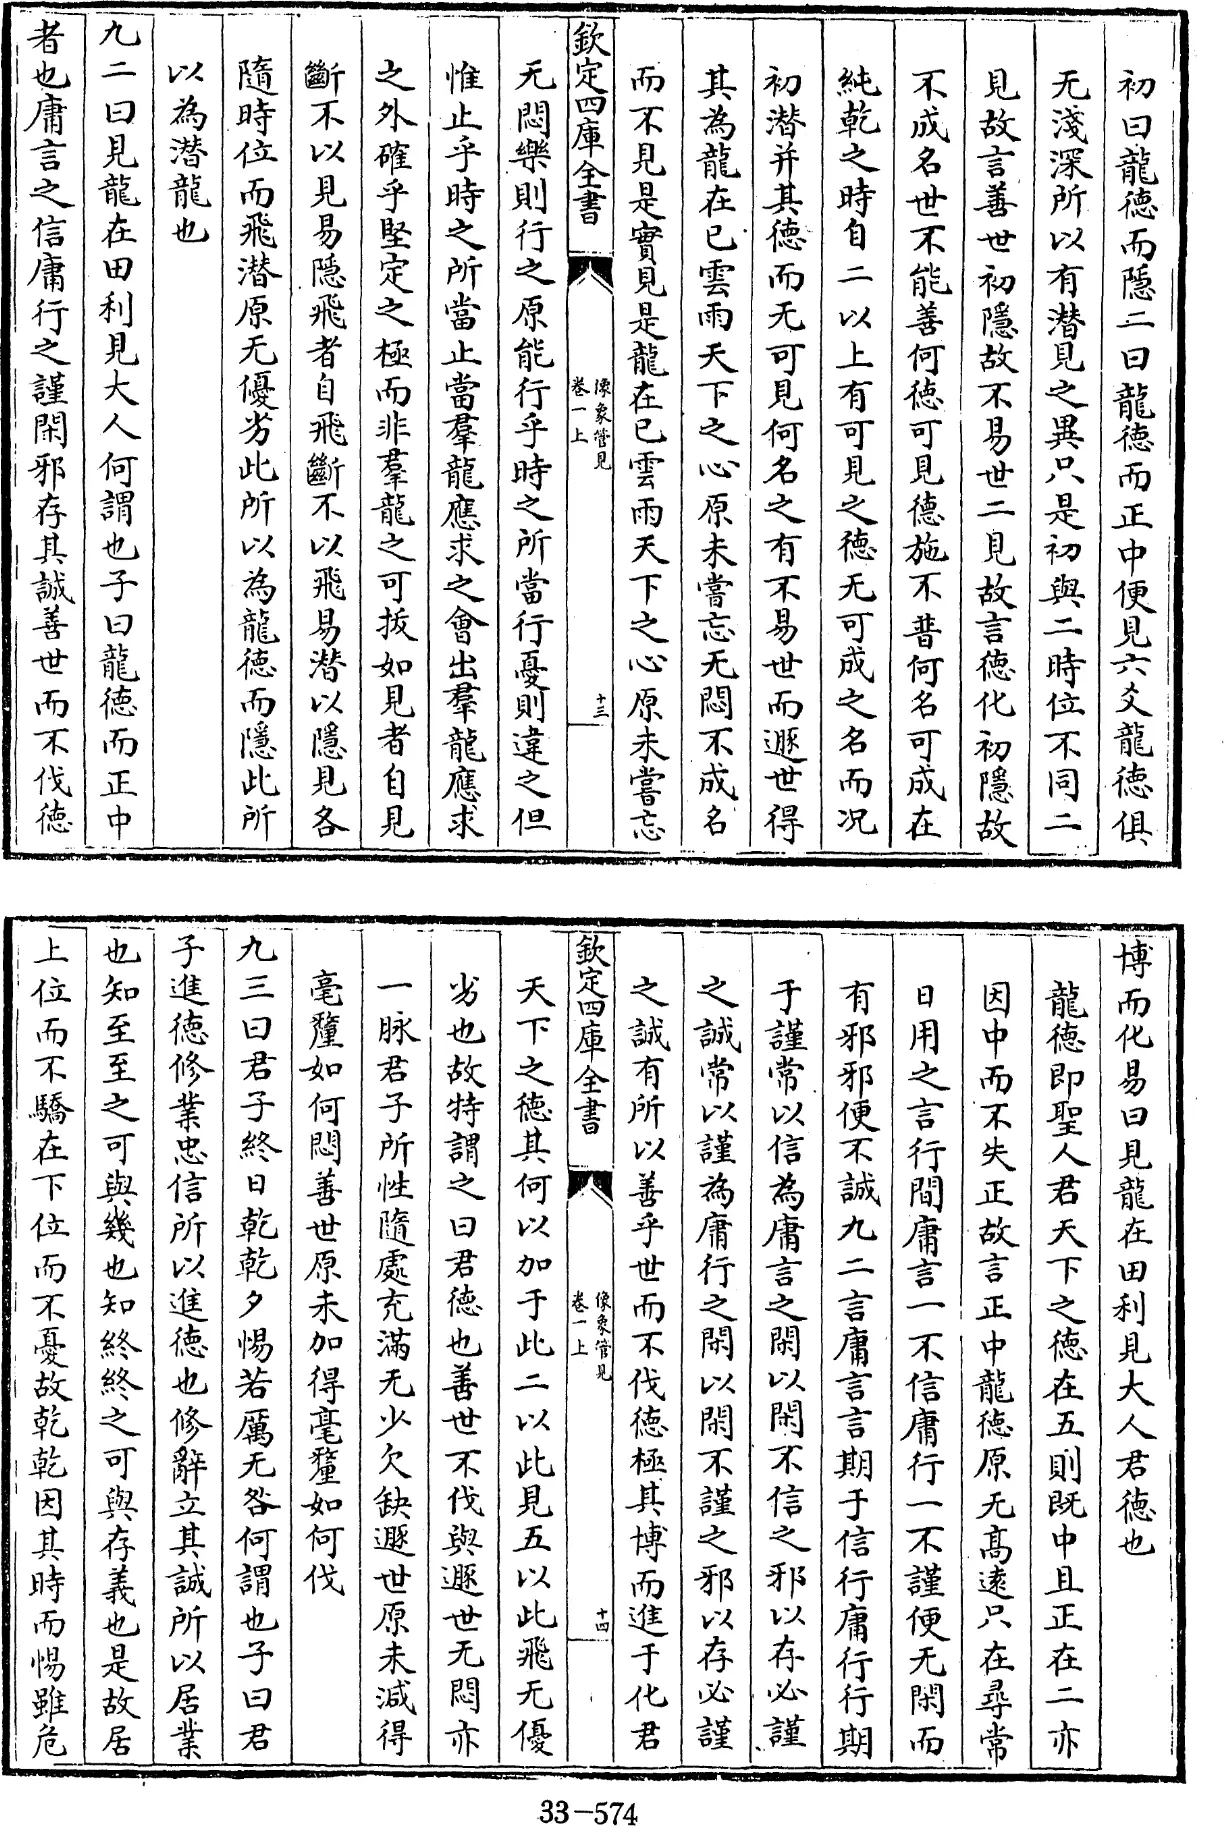 初曰龍德而隱二曰龍德而正中便見六爻龍德俱
无淺深所以有潜見之異只是初與二時位不同二
見故言善世初隱故不易世二見故言德化初隱故
不成名世不能善何德可見德施不普何名可成在
純乾之時自二以上有可見之德无可成之名而况
初潜并其德而无可見何名之有不易世而遯世得
其為龍在已雲雨天下之心原未嘗忘无悶不成名
而不見是實見是龍在已雲雨天下之心原未嘗忘
欽定四庫全書
像象管見
卷一上
十三
无悶樂則行之原能行乎時之所當行憂則違之但
惟止乎時之所當止當羣龍應求之會出羣龍應求
之外確乎堅定之極而非羣龍之可拔如見者自見
斷不以見易隱飛者自飛斷不以飛易潜以隱見各
隨時位而飛潜原无優劣此所以為龍德而隱此所
以為潜龍也
九二曰見龍在田利見大人何謂也子曰龍德而正中
者也庸言之信庸行之謹閑邪存其誠善世而不伐德
博而化易曰見龍在田利見大人君德也
龍德即聖人君天下之德在五則既中且正在二亦
因中而不失正故言正中龍德原无髙逺只在尋常
日用之言行間庸言一不信庸行一不謹便无閑而
有邪邪便不誠九二言庸言言期于信行庸行行期
于謹常以信為庸言之閑以閑不信之邪以存必謹
之誠常以謹為庸行之閑以閑不謹之邪以存必謹
之誠有所以善乎世而不伐德極其博而進于化君
欽定四庫全書
像象管見
卷一上
十四
天下之德其何以加于此二以此見五以此飛无優
劣也故特謂之曰君德也善世不伐與遯世无悶亦
一脉君子所性隨處充滿无少欠缺遯世原未減得
毫釐如何悶善世原未加得毫釐如何伐
九三曰君子終日乾乾夕惕若厲无咎何謂也子曰君
子進德修業忠信所以進德也修辭立其誠所以居業
也知至至之可與幾也知終終之可與存義也是故居
上位而不驕在下位而不憂故乾乾因其時而惕雖危
33-574